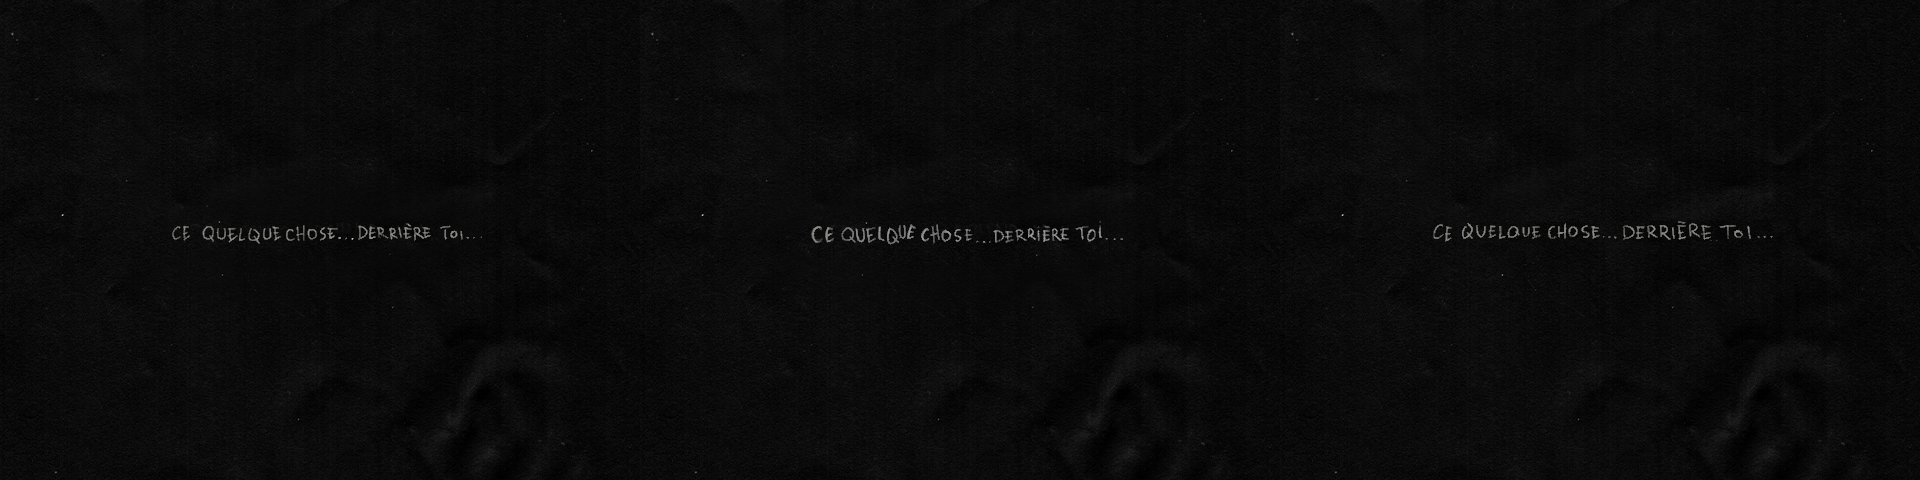 CE QUELQUE CHOSE...DERRIÈRE TOI...
CE QUELQUE CHOSE...DERRIÈRE TOI...
CE QUELQUE CHOSE...DERRIÈRE TOI...